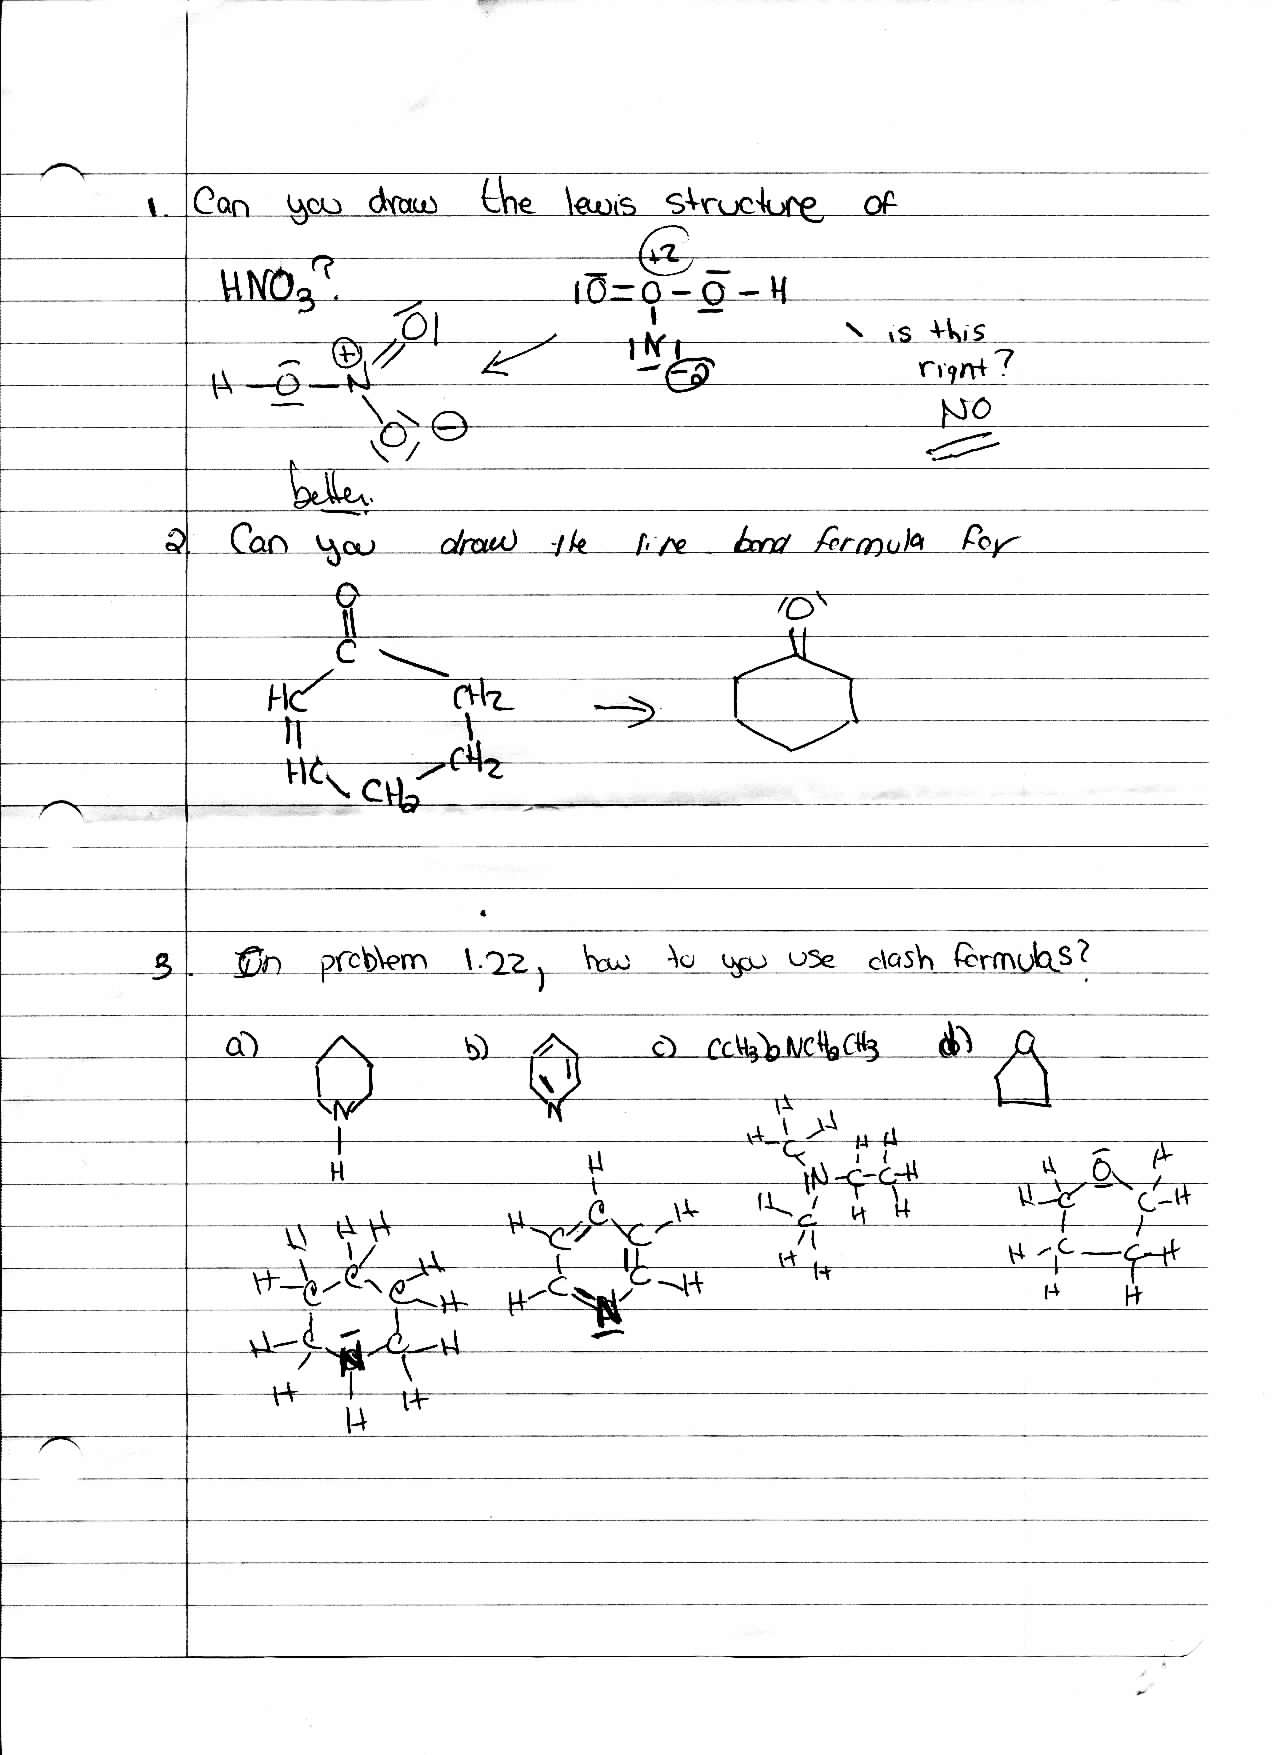 1. Can you draw the lewis structure of
HNO3?
+2
IO=O-O-H
INI
-2
\ is this
right?
NO
H-O-N
+
OI
(O)
-
better.
2 Can you draw the line bond formula for
O
C
HC
CH2
HC
CH2
CH2
'O'
3. In problem 1.22, how to you use dash formulas?
a)
N
H
b)
N
c) (CH3)2NCH2CH3
d)
O
H
H
H
C
N
C
C
H
H
H
H
H
C
H
H
H
H
O
H
H
C
C
H
H
C
C
H
H
H
H
C
H
C
C
H
C
C
H
H
N
H
H
H
H
C
C
C
H
H
H
C
N
C
H
H
H
H